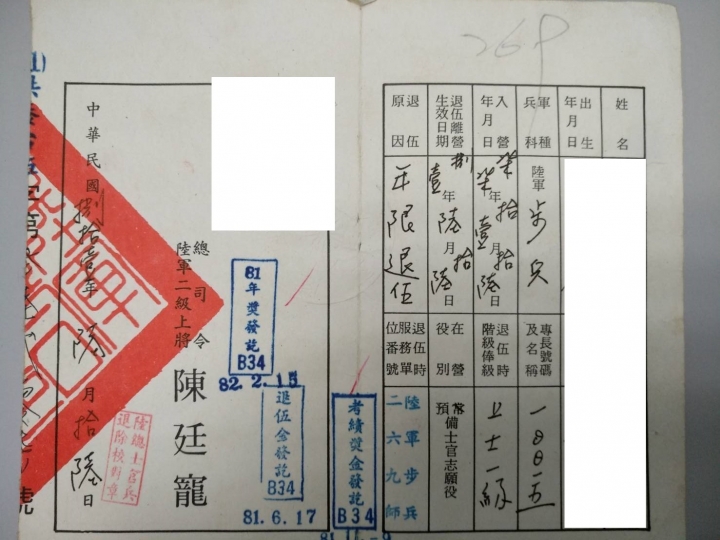 269
姓名
出生年月日
軍種兵科
陸軍步兵
專長號碼及名稱
入營年月日
柒拾柒年拾壹月拾陸日
退伍時階級俸級
上士一級
退伍離營生效日期
捌拾壹年陸月拾陸日
在營役別
預備士官志願役
退伍原因
年限退伍
退伍時服務單位番號
陸軍步兵二六九師
考績獎金發訖
B34
退伍金發訖
B34
81.6.17
81年獎發訖
B34
82.2.15
總司令
陸軍二級上將
陳廷寵
陸總士官兵退除檢對章
中華民國捌拾壹年陸月拾陸日
號